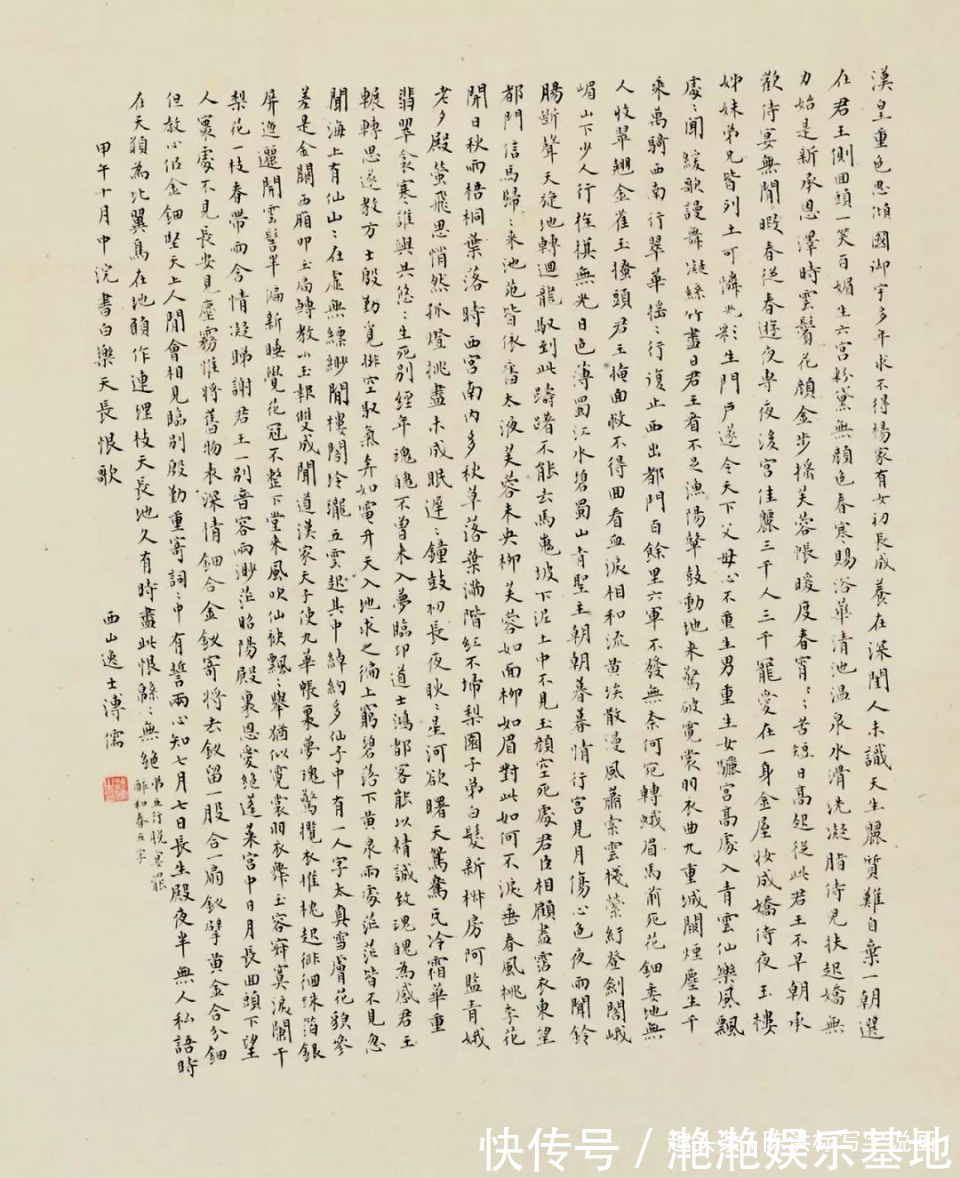 漢皇重色思傾國御宇多年求不得楊家有女初長成養在深閨人未識天生麗質難自棄一朝選
在君王側回頭一笑百媚生六宮粉黛無顏色春寒賜浴華清池溫泉水滑洗凝脂侍兒扶起嬌無
力始是新承恩澤時雲鬢花顏金步搖芙蓉帳暖度春宵〻苦短日高起從此君王不早朝承
歡侍宴無閒暇春從春遊夜專夜後宮佳麗三千人三千寵愛在一身金屋妝成嬌侍夜玉樓
姊妹弟兄皆列土可憐光彩生門戶遂令天下父母心不重生男重生女驪宮高處入青雲仙樂風飄
處〻聞緩歌謾舞凝絲竹盡日君王看不足漁陽鞞鼓動地來驚破霓裳羽衣曲九重城闕煙塵生千
乘萬騎西南行翠華搖〻行復止西出都門百餘里六軍不發無奈何宛轉蛾眉馬前死花鈿委地無
人收翠翹金雀玉搔頭君王掩面救不得回看血淚相和流黃埃散漫風蕭索雲棧縈紆登劍閣峨
嵋山下少人行旌旗無光日色薄蜀江水碧蜀山青聖主朝朝暮暮情行宮見月傷心色夜雨聞鈴
腸斷聲天旋地轉迴龍馭到此躊躇不能去馬嵬坡下泥土中不見玉顏空死處君臣相顧盡霑衣東望
都門信馬歸〻來池苑皆依舊太液芙蓉未央柳芙蓉如面柳如眉對此如何不淚垂春風桃李花
開日秋雨梧桐葉落時西宮南內多秋草落葉滿階紅不掃梨園子弟白髮新椒房阿監青娥
老夕殿螢飛思悄然孤燈挑盡未成眠遲〻鐘鼓初長夜耿〻星河欲曙天鴛鴦瓦冷霜華重
翡翠衾寒誰與共悠〻生死別經年魂魄不曾來入夢臨邛道士鴻都客能以精誠致魂魄為感君王
輾轉思遂教方士殷勤覓排空馭氣奔如電升天入地求之徧上窮碧落下黃泉兩處茫茫皆不見忽
聞海上有仙山〻在虛無縹緲間樓閣玲瓏五雲起其中綽約多仙子中有一人字太真雪膚花貌參
差是金闕西廂叩玉扃轉教小玉報雙成聞道漢家天子使九華帳裏夢魂驚攬衣推枕起徘徊珠箔銀
屏迤邐開雲髻半偏新睡覺花冠不整下堂來風吹仙袂飄〻舉猶似霓裳羽衣舞玉容寂寞淚闌干
梨花一枝春帶雨含情凝睇謝君王一別音容兩渺茫昭陽殿裏恩愛絕蓬萊宮中日月長回頭下望
人寰處不見長安見塵霧惟將舊物表深情鈿合金釵寄將去釵留一股合一扇釵擘黃金合分鈿
但教心似金鈿堅天上人間會相見臨別殷勤重寄詞〻中有誓兩心知七月七日長生殿夜半無人私語時
在天願為比翼鳥在地願作連理枝天長地久有時盡此恨緜〻無絕
第五行脫宴罷
醉和春五字
甲午十月中浣書白樂天長恨歌
西山逸士溥儒
快传号／滟滟娱乐基地